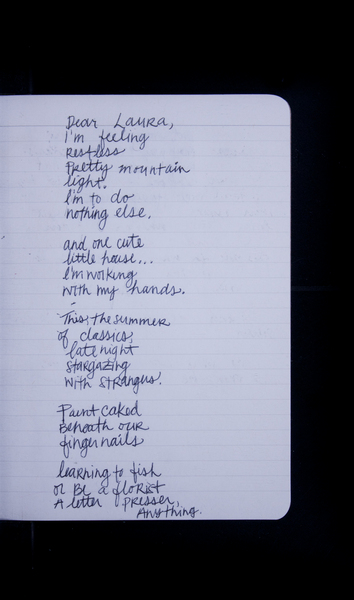 Dear Laura,
I'm feeling
restless
Pretty mountain
light.
I'm to do
nothing else.
and one cute
little house...
I'm working
with my hands.
This, the summer
of classics,
late night
stargazing
with strangers.
Paint caked
Beneath our
fingernails
learning to fish
or Be a florist
A letter presser,
Anything.